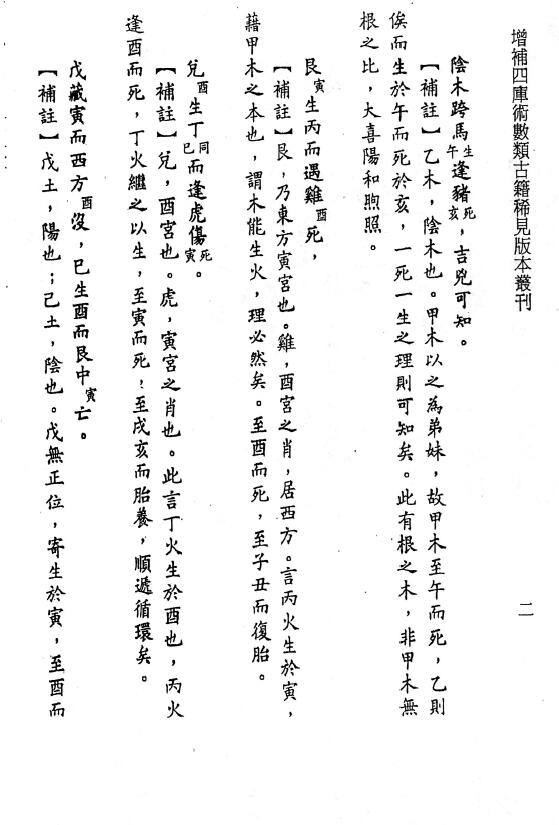 增補四庫術數類古籍稀見版本叢刊
二
陰木跨馬生午逢豬死亥，吉兇可知。
【補註】乙木，陰木也。甲木以之為弟妹，故甲木至午而死，乙則
俟而生於午而死於亥，一死一生之理則可知矣。此有根之木，非甲木無
根之比，大喜陽和煦照。
艮寅生丙而遇雞酉死，
【補註】艮，乃東方寅宮也。雞，酉宮之肖，居西方。言丙火生於寅，
藉甲木之本也，謂木能生火，理必然矣。至酉而死，至子丑而復胎。
兌酉生丁同巳而逢虎傷死寅。
【補註】兌，酉宮也。虎，寅宮之肖也。此言丁火生於酉也，丙火
逢酉而死，丁火繼之以生，至寅而死；至戌亥而胎養，順遞循環矣。
戊藏寅而西方酉沒，巳生酉而艮中寅亡。
【補註】戊土，陽也；己土，陰也。戊無正位，寄生於寅，至酉而